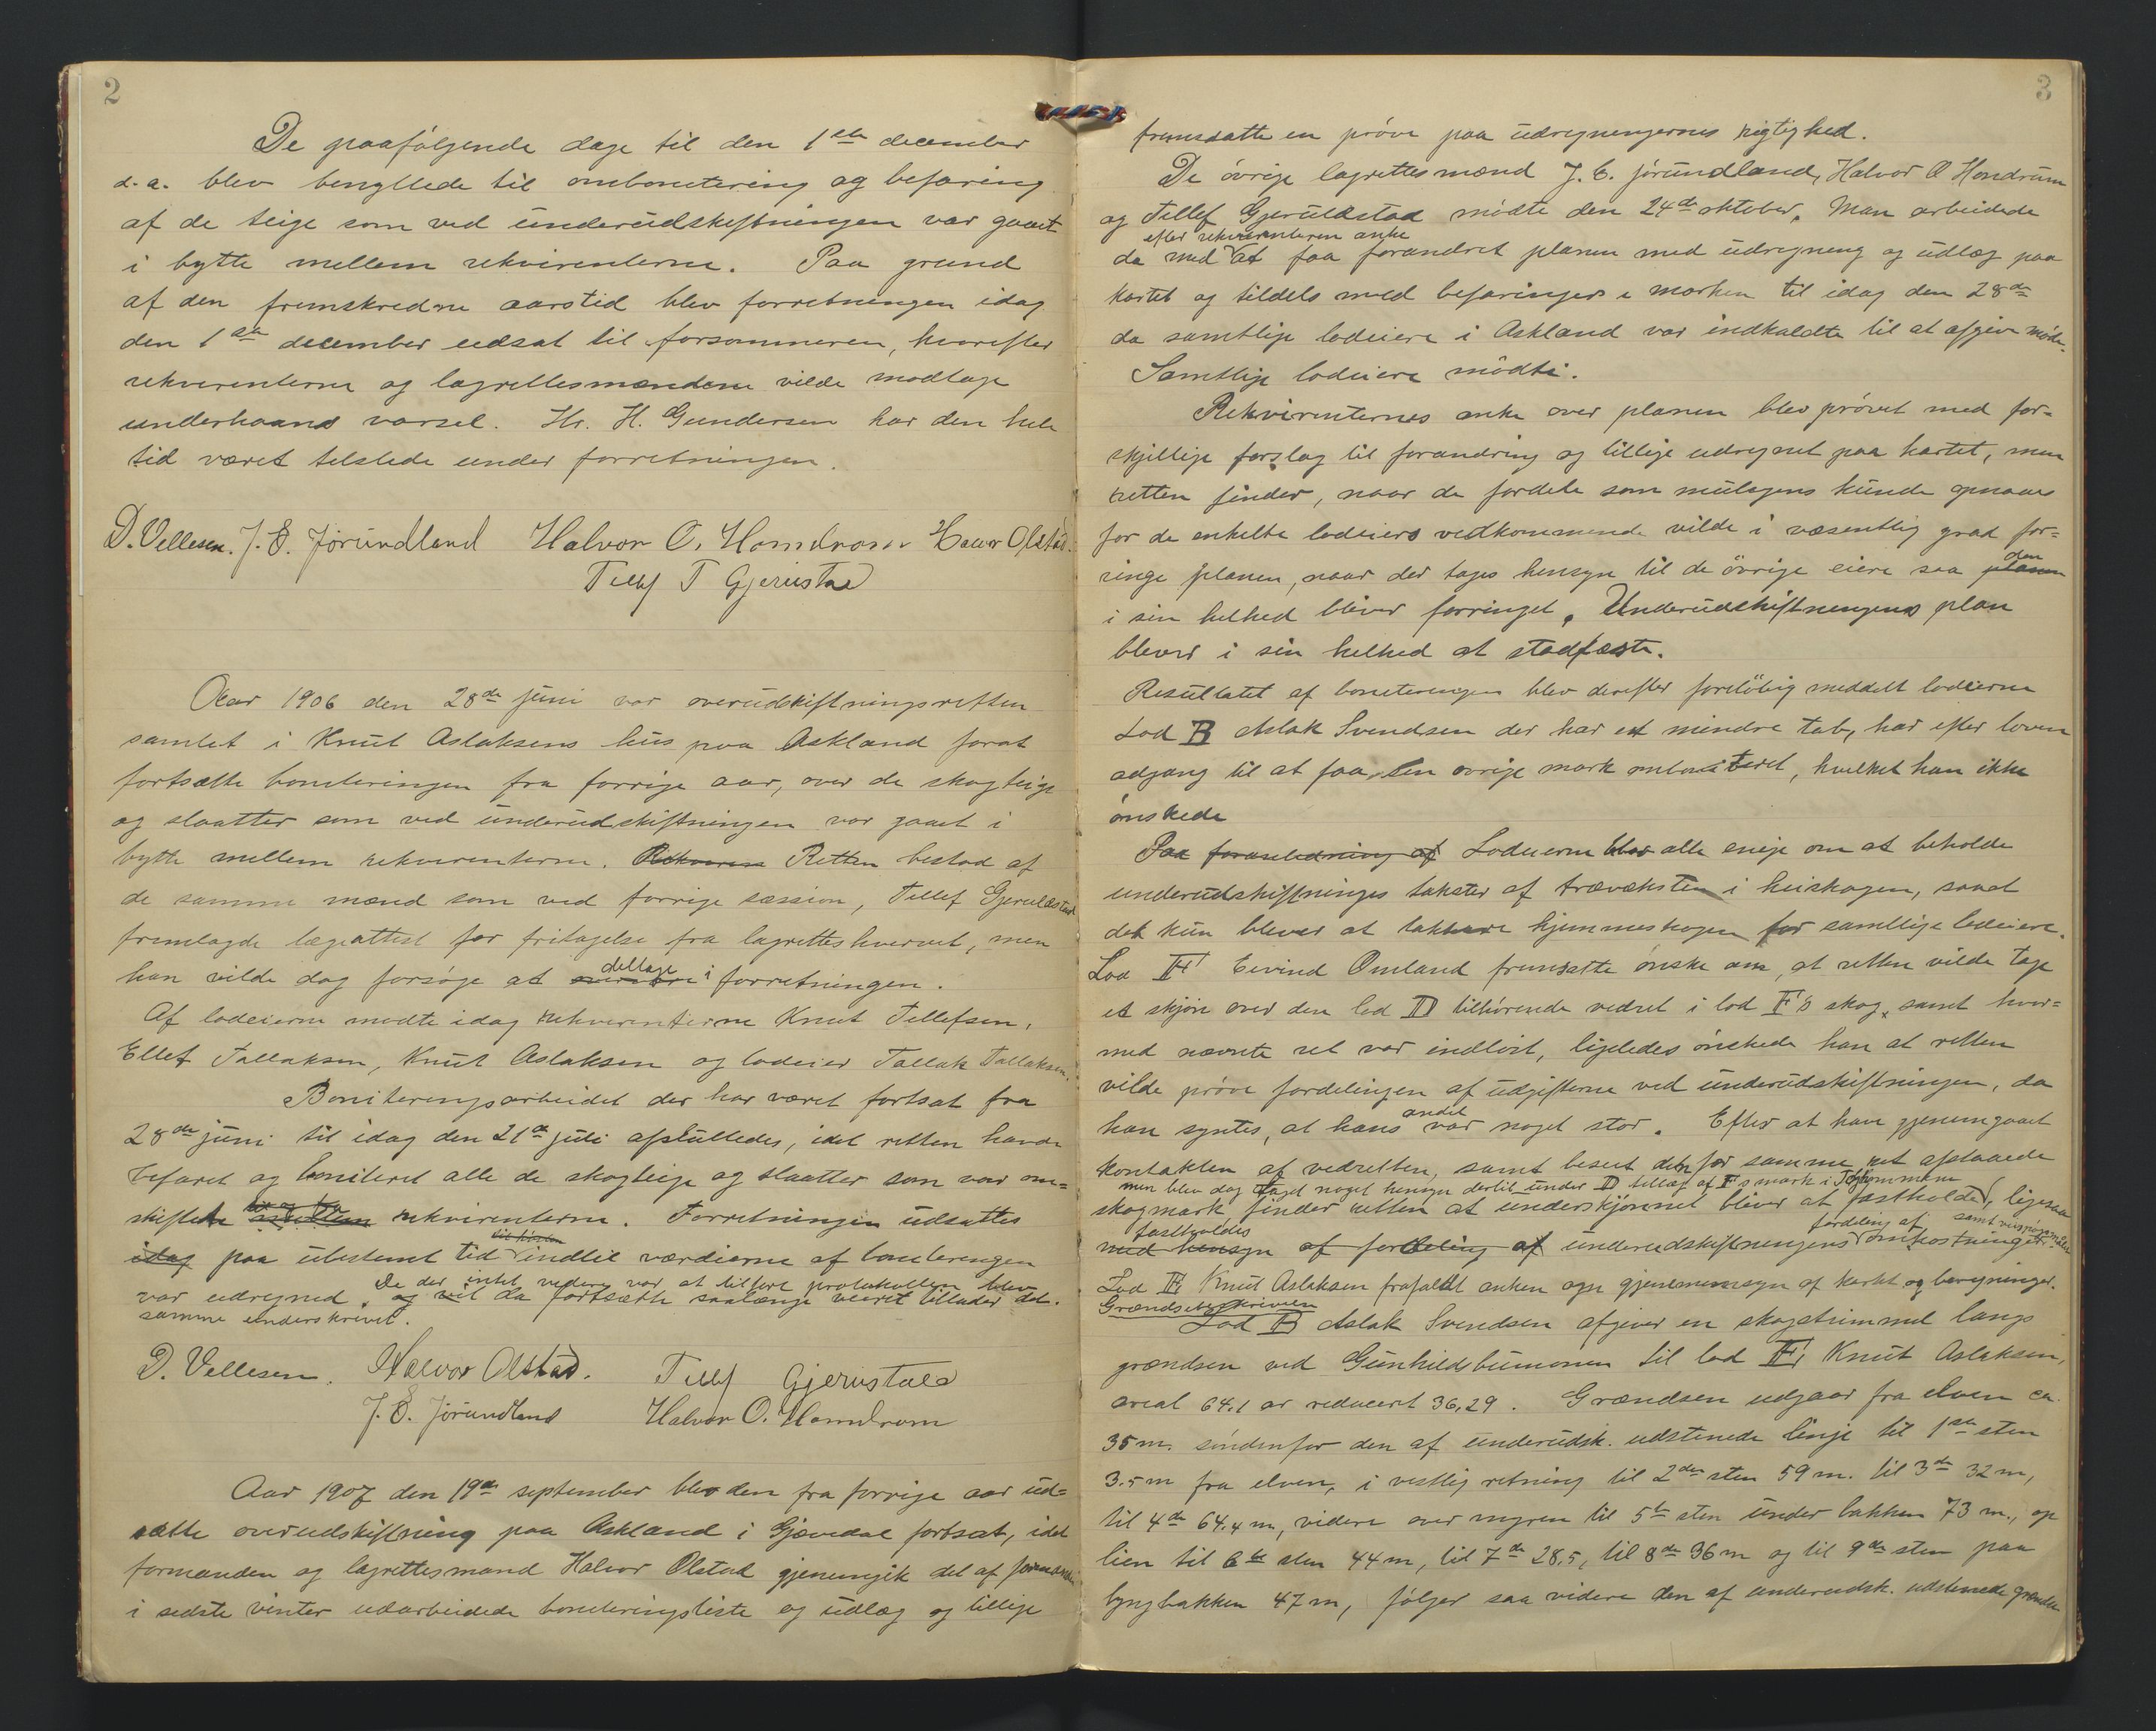 2
De paafølgende dage til den 1ste december
d.a. blev benyttede til ombonitering og befaring
af de teige som ved underudskiftningen var gaaet
i bytte mellem rekvirenterne. Paa grund
af den fremskredne aarstid blev forretningen idag
den 1ste december udsat til forsommeren, hvorefter
rekvirenterne og lagrettesmændene vilde modtage
underhaands varsel. Hr. H. Gundersen har den hele
tid været tilstede under forretningen.
D. Vellesen. J. E. Jörundland Halvor O. Homdrom Halvor Olstad.
Tellef T Gjerustad
Aar 1906 den 28de juni var overudskiftningsretten
samlet i Knut Aslaksens hus paa Askland forat
fortsætte boniteringen fra forrige aar, over de skogteige
og slaatter som ved underudskiftningen var gaaet i
bytte mellem rekvirenterne. Rekviren Retten bestod af
de samme mænd som ved forrige session, Tellef Gjeruldstad
fremlagde lægeattest for fritagelse fra lagrettes hvervet, men
deltage
han vilde dog forsøge at i forretningen.
Af lodeierne mødte idag rekvirenterne Knut Tellefsen,
Ellef Tallaksen, Knut Aslaksen og lodeier Tallak Tallaksen.
Boniteringsarbeidet der har været fortsat fra
28de juni til idag den 21de juli afsluttedes, idet retten havde
befaret og boniteret alle de skogteige og slaatter som var om=
skiftede imellem rekvirenterne. Forretningen udsattes
til høsten
idag paa ubestemt tid indtil værdierne af boniteringen
De der intet videre var at tilføre protokollen blev
var udregned, og vil da fortsætte saalænge veiret tillader det.
samme underskrivet.
D. Vellesen. Halvor Olstad. Tellef Gjerustad
J. E. Jörundland Halvor O. Homdrom
Aar 1907 den 19de september blev den fra forrige aar ud=
satte overudskiftning paa Askland i Gjøvdal fortsat, idet
formanden og lagrettesmand Halvor Olstad gjennemgik det af formanden
i sidste vinter udarbeidede boniteringsliste og udlæg og tillige
3
fremsatte en prøve paa udregningernes rigtighed.
De øvrige lagrettesmænd J. E. Jörundland, Halvor O Homdrum
og Tellef Gjeruldstad mødte den 24de oktober. Man arbeidede
efter rekvirenternes anke
da med at faa forandret planen med udregning og udlæg paa
kartet og tildels med befaringer i marken til idag den 28de
da samtlige lodeiere i Askland var indkaldte til at afgive møde.
Samtlige lodeiere mødte.
Rekvirenternes anke over planen blev prøvet med for=
skjellige forslag til forandring og tillige udregnet paa kartet, men
retten finder, naar de fordele som muligens kunde opnaaes
for de enkelte lodeiers vedkommende vilde i væsentlig grad for=
den
ringe planen, naar der tages hensyn til de øvrige eiere saa planen
i sin helhed bliver forringet. Underudskiftningens plan
bliver i sin helhed at stadfæste.
Resultatet af boniteringen blev derefter foreløbig meddelt lodeierne
Lod B Aslak Svendsen der har et mindre tab, har efter loven
adgang til at faa sin øvrige mark omboniteret, hvilket han ikke
ønskede
Paa foranledning af Lodeierne blev alle enige om at beholde
underudskiftninges takster af trævæksten i heiskogen, saaat
det kun bliver at taksere hjemmeskogen for samtlige lodeiere.
Lod H Eivind Omland fremsatte ønske om, at retten vilde tage
et skjøn over den lod D tilhørende vedret i lod F's skog, samt hvor=
med nævnte ret var indløst, ligeledes ønskede han at retten
vilde prøve fordelingen af udgifterne ved underudskiftningen, da
andel
han syntes, at hans var noget stor. Efter at have gjennemgaaet
kontakten af vedretten, samt beseet den for samme ret afstaaede
men blev dog taget noget hensyn dertil under D tillæg af F's mark i
skogmark finder retten at underskjønnet bliver at fastholde, ligesaa
fastholdes fordeling af samt
med hensyn af fordeling af underudskiftningens omkostninger.
Lod E Knut Aslaksen frafaldt anken ogsaa gjennemsyn af kartet og beregninger.
Grændsebeskrivelse
Lod B Aslak Svendsen afgiver en skogstrimmel langs
grændsen ved Gunhildsbumonen til lod E Knut Aslaksen,
areal 64,1 ar reduceret 36,29. Grændsen udgaar fra elven ca.
35 m. søndenfor den af underudsk. udstenede linje til 1ste sten
3.5 m fra elven, i vestlig retning til 2den sten 59 m. til 3de 32 m,
til 4de 64.4 m, videre over myren til 5te sten under bakken 73 m., op
lien til 6te sten 44 m, til 7de 28,5, til 8de 36 m og til 9de sten paa
lyngbakken 47 m, følger saa videre den af underudsk. udstenede grændse